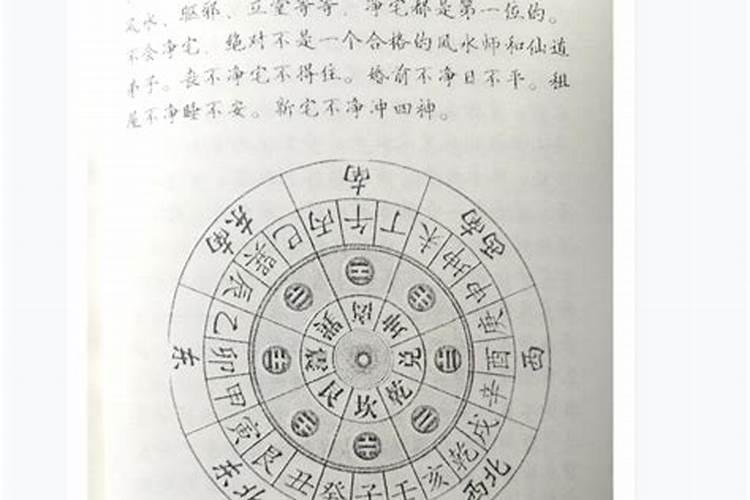 风水、驱邪、立堂等等，净宅都是第一位的。
不会净宅，绝对不是一个合格的风水师和仙道
弟子。丧不净宅不得住。婚前不净日不平。租
屋不净睡不安。新宅不净冲四神。
南
东南
西南
东
西
东北
西北
巳丙午丁未坤申庚酉辛戌乾亥壬子癸丑艮寅甲卯乙辰巽
离坤兑乾坎艮震巽